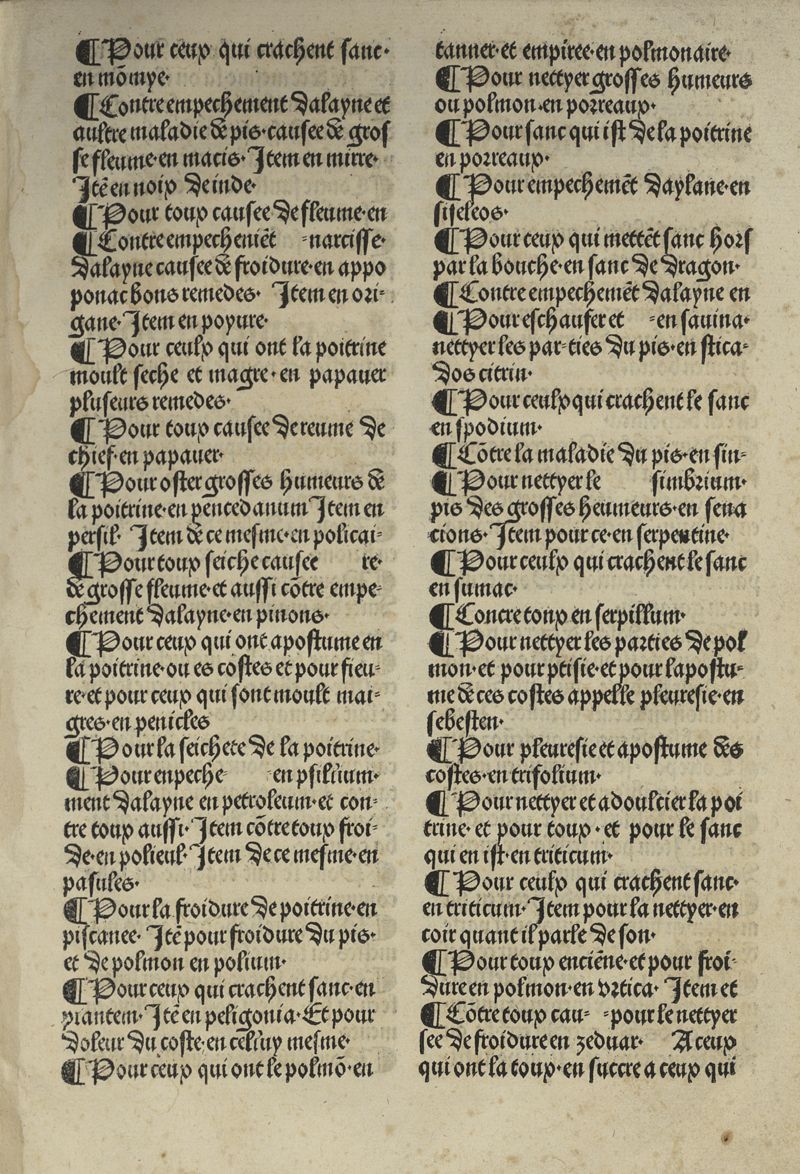 ¶ Pour ceux qui crachent sanc·
en mõmye·
¶ Contre empechement dalayne et
aultre maladie de pis·causee de gros
se fleume·en macis·Item en mirre·
Itẽ en noix deinde·
¶ Pour toux causee de fleume·en
¶ Contre empecheniẽt -narcisse·
dalayne causee de froidure·en appo
ponac bons remedes· Item en ori-
gane·Item en poyure·
¶ Pour ceulx qui ont la poitrine
moult seche et magre·en papauer
pluseurs remedes·
¶ Pour toux causee de reume de
chief·en papauer·
¶ Pour oster grosses humeurs de
la poitrine·en pencedanum Item en
persil· Item de ce mesme·en policai-
¶ Pour toux seiche causee re·
de grosse fleume·et aussi cõtre empe-
chement dalayne·en pinons·
¶ Pour ceux qui ont apostume en
la poitrine·ou es costes et pour fieu-
re·et pour ceux qui sont moult mai-
gres·en penicles
¶ Pour la seichete de la poitrine·
¶ Pour enpeche -en psiliium·
ment dalayne en petroleum·et con-
tre toux aussi·Item cõtre toux froi-
de·en polieul·Item de ce mesme·en
pasules·
¶ Pour la froidure de poitrine·en
piscanee· Itẽ pour froidure du pis·
et de polmon en polium·
¶ Pour ceux qui crachent sanc·en
plantem·Itẽ en peligonia·Et pour
doleur du coste·en celuy mesme·
¶ Pour ceux qui ont le polmõ·en
tanner·et empiree·en polmonaire·
¶ Pour nettyer grosses humeurs
ou polmon·en porreaux·
¶ Pour sanc qui ist de la poitrine
en porreaux·
¶ Pour empechemẽt daylane·en
siseleos·
¶ Pour ceux qui mettẽt sanc hors
par la bouche·en sanc de dragon·
¶ Contre empechemẽt dalayne en
¶ Pour eschaufer et -en sauina·
nettyer les par-ties du pis·en stica-
dos citrin·
¶ Pour ceulx qui crachent le sanc
en spodium·
¶ Cõtre la maladie du pis·en sin-
¶ Pour nettyer le simbrium·
pis des grosses heumeurs·en sena
cions·Item pour ce·en serpentine·
¶ Pour ceulx qui crachent le sanc
en sumac·
¶ Contre toux en serpillum·
¶ Pour nettyer les parties de pol
mon·et pour ptisie·et pour lapostu-
me de ces costes appelle pleuresie·en
sebesten·
¶ Pour pleuresie et apostume des
costes·en trifolium·
¶ Pour nettyer et adoulcier la poi
trine·et pour toux·et pour le sanc
qui en ist·en triticum·
¶ Pour ceulx qui crachent sanc·
en triticum·Item pour la nettyer·en
coir quant il parle de son·
¶ Pour toux enciẽne·et pour froi-
dure en polmon·en vrtica· Item et
¶ Cõtre toux cau- -pour le nettyer
see de froidure en zeduar· A ceux
qui ont la toux·en succre a ceux qui